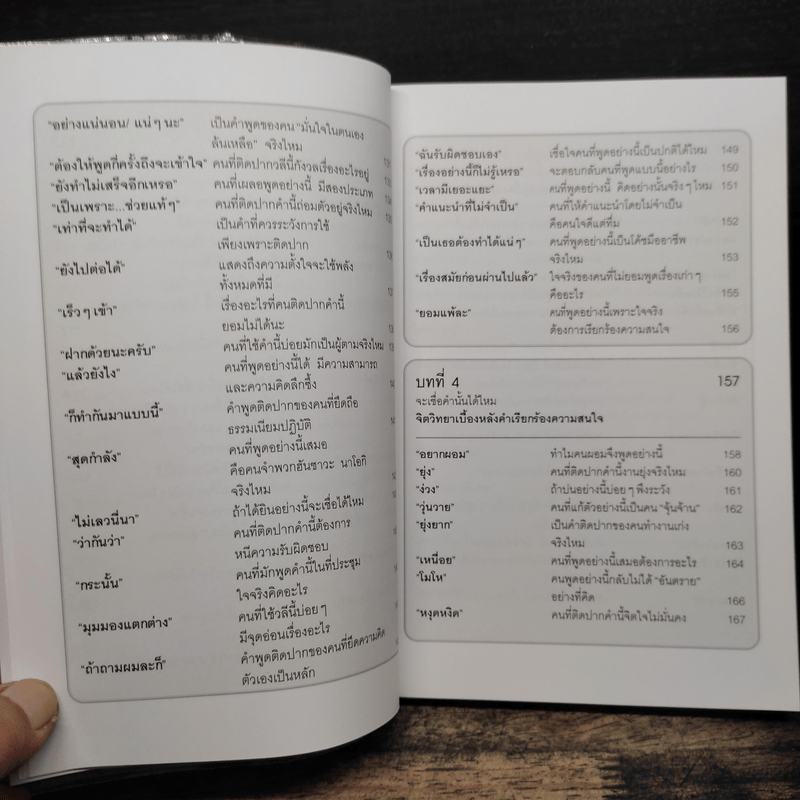 "อย่างแน่นอน/ แน่ๆ นะ" เป็นคำพูดของคน "มั่นใจในตนเอง
ล้นเหลือ" จริงไหม
"ต้องให้พูดกี่ครั้งถึงจะเข้าใจ" คนที่ติดปากวลีนี้กังวลเรื่องอะไรอยู่
"ยังทำไม่เสร็จอีกเหรอ" คนที่เผลอพูดอย่างนี้ มีสองประเภท
"เป็นเพราะ...ช่วยแท้ๆ" คนที่ติดปากคำนี้ถ่อมตัวอยู่จริงไหม
"เท่าที่จะทำได้" เป็นคำที่ควรระวังการใช้
เพียงเพราะติดปาก
"ยังไปต่อได้" แสดงถึงความตั้งใจจะใช้พลัง
ทั้งหมดที่มี
"เร็วๆ เข้า" เรื่องอะไรที่คนติดปากคำนี้
ยอมไม่ได้นะ
"ฝากด้วยนะครับ" คนที่ใช้คำนี้บ่อยมักเป็นผู้ตามจริงไหม
"แล้วยังไง" คนที่พูดอย่างนี้ได้ มีความสามารถ
และความคิดลึกซึ้ง
"ก็ทำกันมาแบบนี้" คำพูดติดปากของคนที่ยึดถือ
ธรรมเนียมปฏิบัติ
"สุดกำลัง" คนที่พูดอย่างนี้เสมอ
คือคนจำพวกฮันซาวะ นาโอกิ
จริงไหม
"ไม่เลวนี่นา" ถ้าได้ยินอย่างนี้จะเชื่อได้ไหม
"ว่ากันว่า" คนที่ติดปากคำนี้ต้องการ
หนีความรับผิดชอบ
"กระนั้น" คนที่มักพูดคำนี้ในที่ประชุม
ใจจริงคิดอะไร
"มุมมองแตกต่าง" คนที่ใช้วลีนี้บ่อยๆ
มีจุดอ่อนเรื่องอะไร
"ถ้าถามผมละก็" คำพูดติดปากของคนที่ยึดความคิด
ตัวเองเป็นหลัก
"ฉันรับผิดชอบเอง" เชื่อใจคนที่พูดอย่างนี้เป็นปกติได้ไหม 149
"เรื่องอย่างนี้ก็ไม่รู้เหรอ" จะตอบกลับคนที่พูดแบบนี้อย่างไร 150
"เวลามีเยอะแยะ" คนที่พูดอย่างนี้ คิดอย่างนั้นจริงๆ ไหม 151
"คำแนะนำที่ไม่จำเป็น" คนที่ให้คำแนะนำโดยไม่จำเป็น
คือคนใจดีแต่ทึ่ม 152
"เป็นเธอต้องทำได้แน่ๆ" คนที่พูดอย่างนี้เป็นโค้ชมืออาชีพ
จริงไหม 153
"เรื่องสมัยก่อนผ่านไปแล้ว" ใจจริงของคนที่ไม่ยอมพูดเรื่องเก่าๆ
คืออะไร 155
"ยอมแพ้ละ" คนที่พูดอย่างนี้เพราะใจจริง
ต้องการเรียกร้องความสนใจ 156
บทที่ 4 157
จะเชื่อคำนั้นได้ไหม
จิตวิทยาเบื้องหลังคำเรียกร้องความสนใจ
"อยากผอม" ทำไมคนผอมจึงพูดอย่างนี้ 158
"ยุ่ง" คนที่ติดปากคำนี้งานยุ่งจริงไหม 160
"ง่วง" ถ้าบ่นอย่างนี้บ่อยๆ พึงระวัง 161
"วุ่นวาย" คนที่แก้ตัวอย่างนี้เป็นคน "จุ้นจ้าน" 162
"ยุ่งยาก" เป็นคำติดปากของคนทำงานเก่ง
จริงไหม 163
"เหนื่อย" คนที่พูดอย่างนี้เสมอต้องการอะไร 164
"โมโห" คนพูดอย่างนี้กลับไม่ได้ "อันตราย"
อย่างที่คิด 166
"หงุดหงิด" คนที่ติดปากคำนี้จิตใจไม่มั่นคง 167